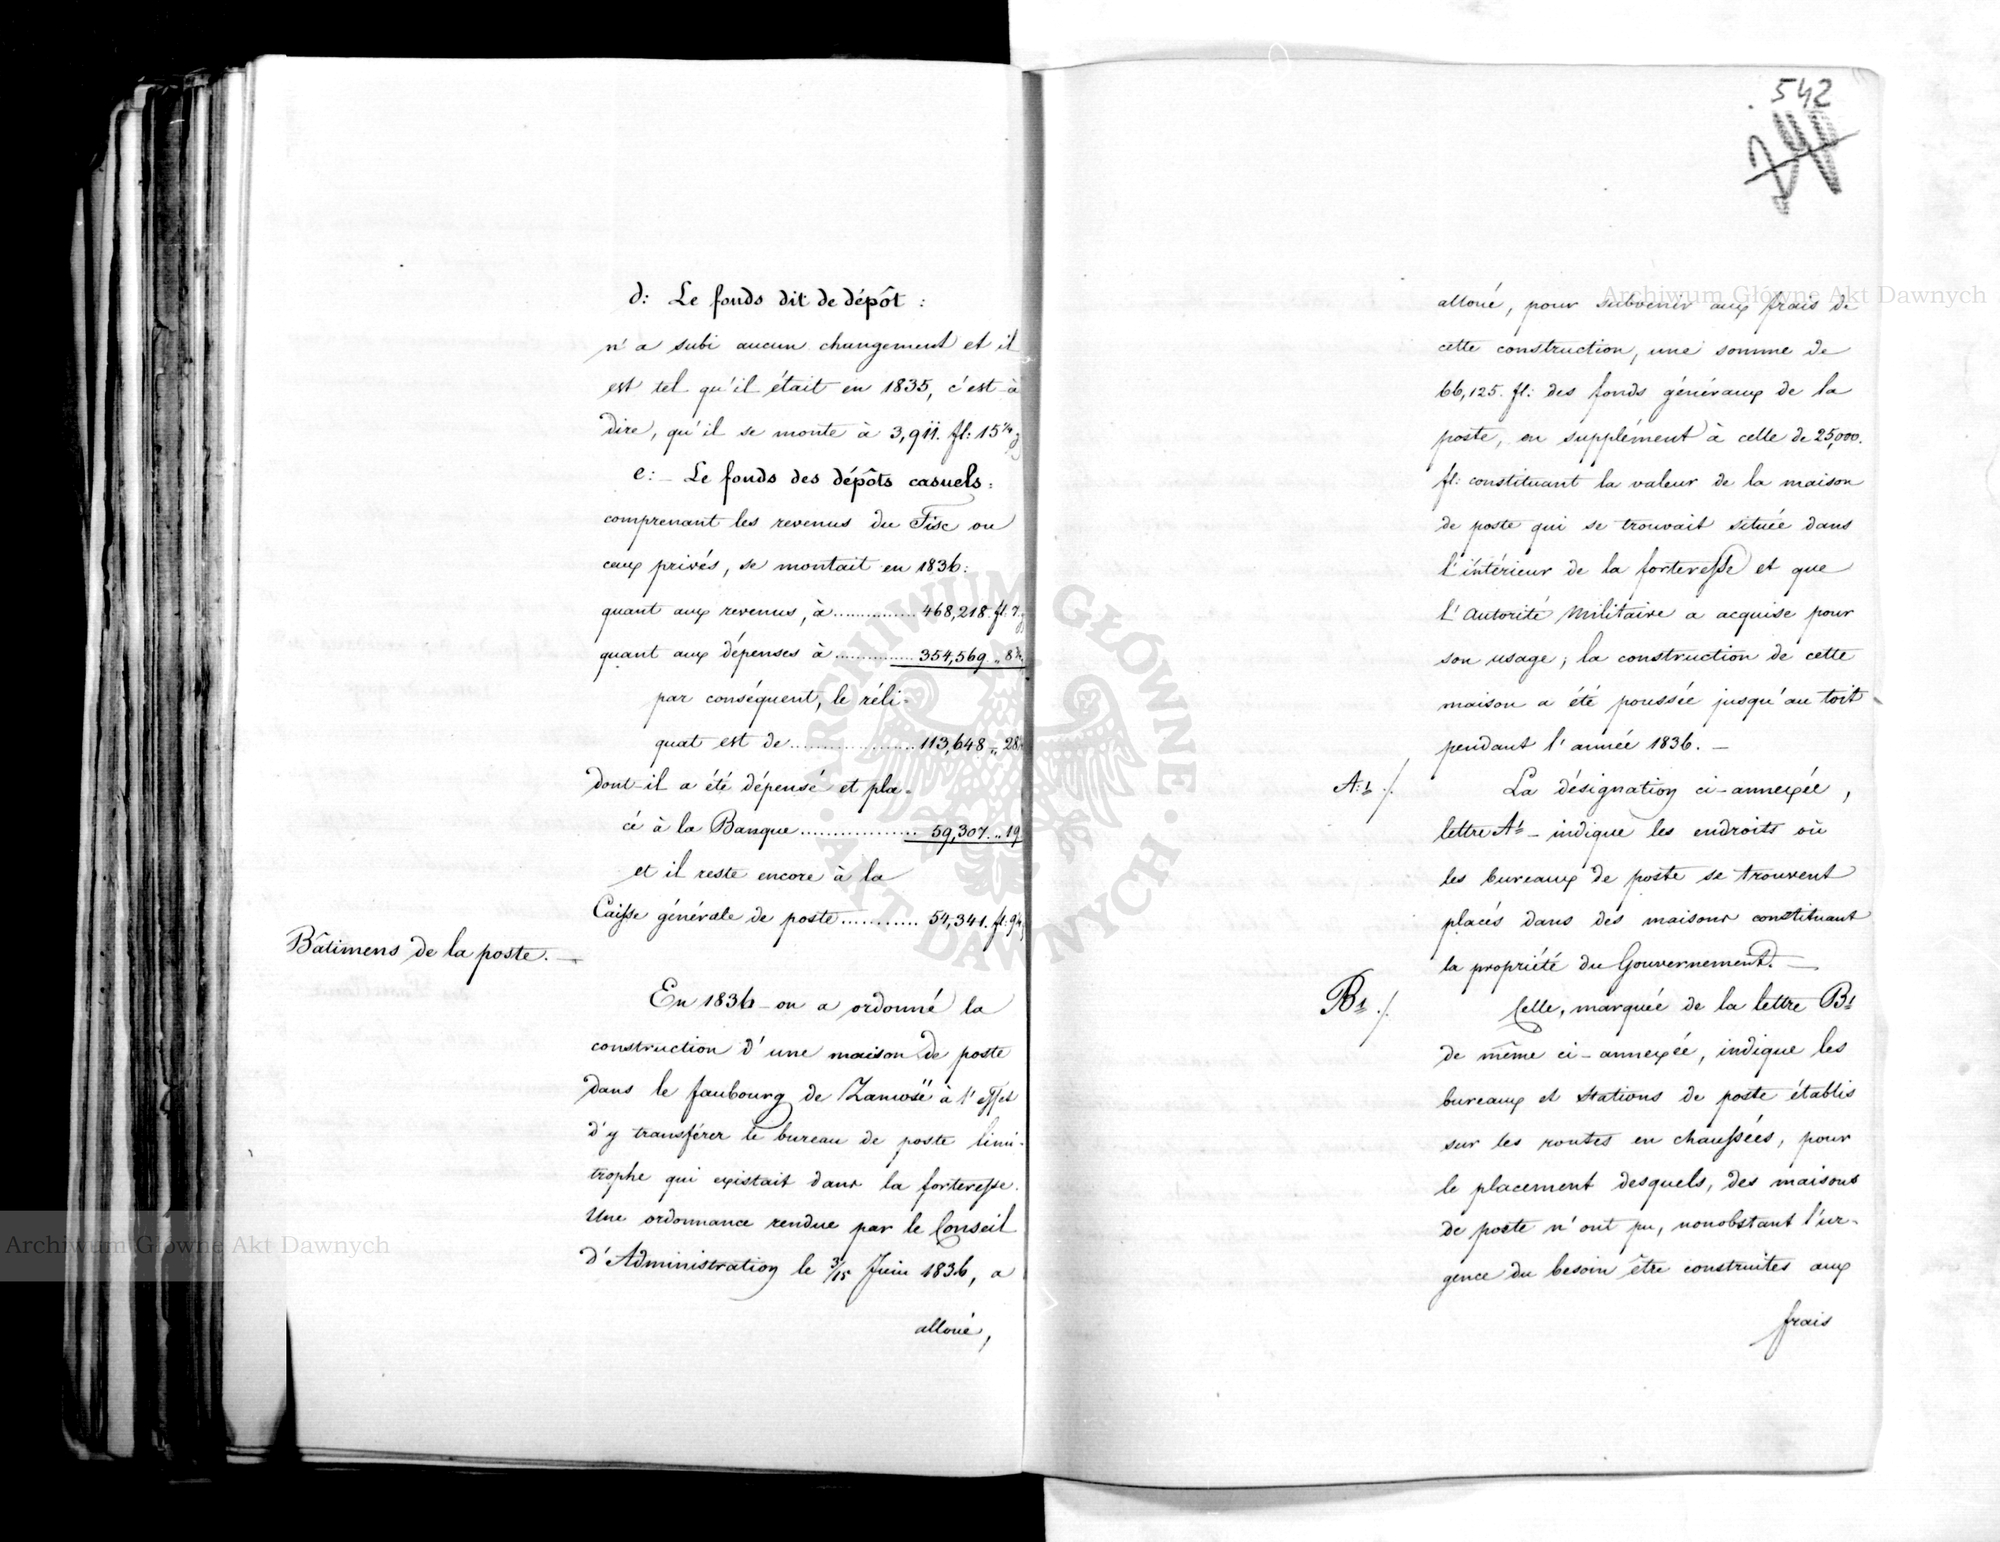 d: Le fonds dit de dépôt :
n'a subi aucun changement et il
est tel qu'il était en 1835, c'est à
dire, qu'il se monte à 3,911. fl: 15
e: Le fonds des dépôts casuels:
comprenant les revenus du Fisc ou
ceux privés, se montait en 1836:
quant aux revenus, à .............. 468,218. fl. 7.
quant aux dépenses à .............. 354,569 „ 8
par conséquent, le réli=
quat est de .................... 113,648 „ 28
dont-il a été dépensé et pla=
cé à la Banque ................. 59,307. „ 19
et il reste encore à la
Caisse générale de poste ........... 54,341. fl: 9
Bâtimens de la poste. —
En 1836 on a ordonné la
construction d'une maison de poste
dans le faubourg de Zamość à l'effet
d'y transférer le bureau de poste limi-
trophe qui existait dans la forteresse.
Une ordonnance rendue par le Conseil
d'Administration le 3/15 Juin 1836, a
alloué,
542
alloué, pour subvenir aux frais de
cette construction, une somme de
66,125. fl: des fonds généraux de la
poste, en supplément à celle de 25,000.
fl: constituant la valeur de la maison
de poste qui se trouvait située dans
l'intérieur de la forteresse et que
l'Autorité Militaire a acquise pour
son usage; la construction de cette
maison a été poussée jusqu'au toit
pendant l'année 1836. —
A:1 ./.
La désignation ci-annexée,
lettre A1 - indique les endroits où
les bureaux de poste se trouvent
placés dans des maisons constituant
la propriété du Gouvernement. —
B1 ./.
Celle, marquée de la lettre B1
de même ci-annexée, indique les
bureaux et stations de poste établis
sur les routes en chaussées, pour
le placement desquels, des maisons
de poste n'ont pu, nonobstant l'ur-
gence du besoin être construites aux
frais
Archiwum Główne Akt Dawnych
Archiwum Główne Akt Dawnych
ARCHIWUM GŁÓWNE · AKT DAWNYCH ·